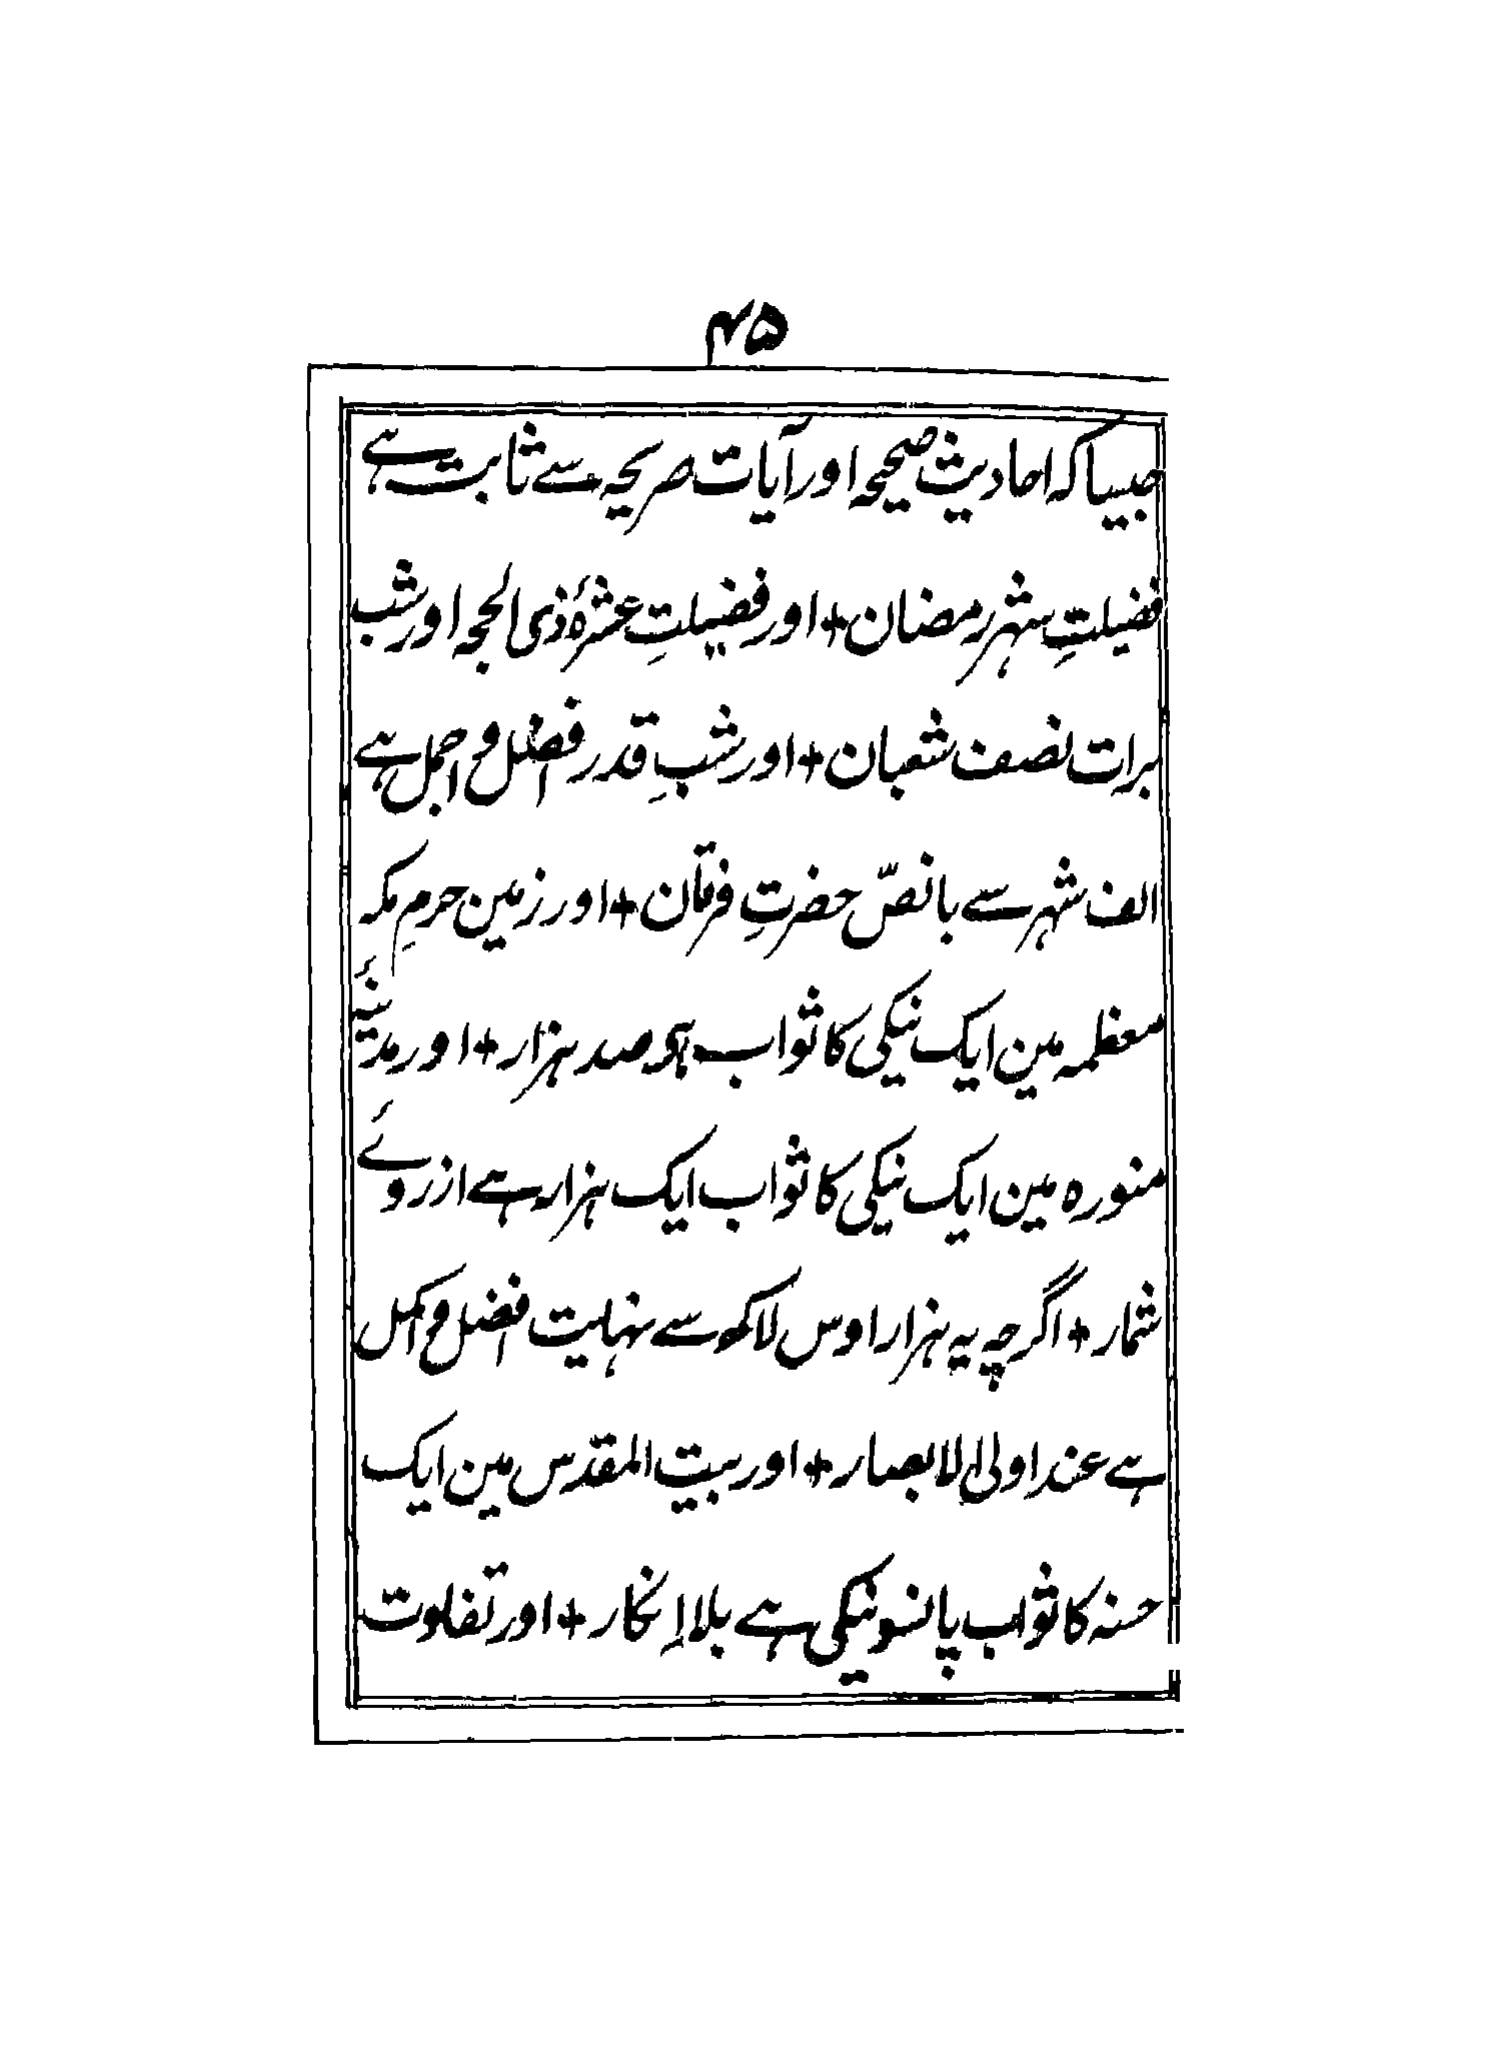 ۴۵
جیسا کہ احادیث صحیحہ اور آیات صریحہ سے ثابت ہے
فضیلتِ شہر رمضان + اور فضیلتِ عشرۂ ذی الحجہ اور شب
برات نصف شعبان + اور شبِ قدر افضل و اجمل ہے
الف شہر سے بانصّ حضرتِ فرقان + اور زمین حرمِ مکہ
معظمہ مین ایک نیکی کا ثواب ہو صد ہزار + اور مدینۂ
منورہ مین ایک نیکی کا ثواب ایک ہزار ہے ازروئے
شمار + اگرچہ یہ ہزار اوس لاکھ سے نہایت افضل و اکمل
ہے عند اولی الابصار + اور بیت المقدس مین ایک
حسنہ کا ثواب پانسو نیکی ہے بلا اِنکار + اور تفاوت